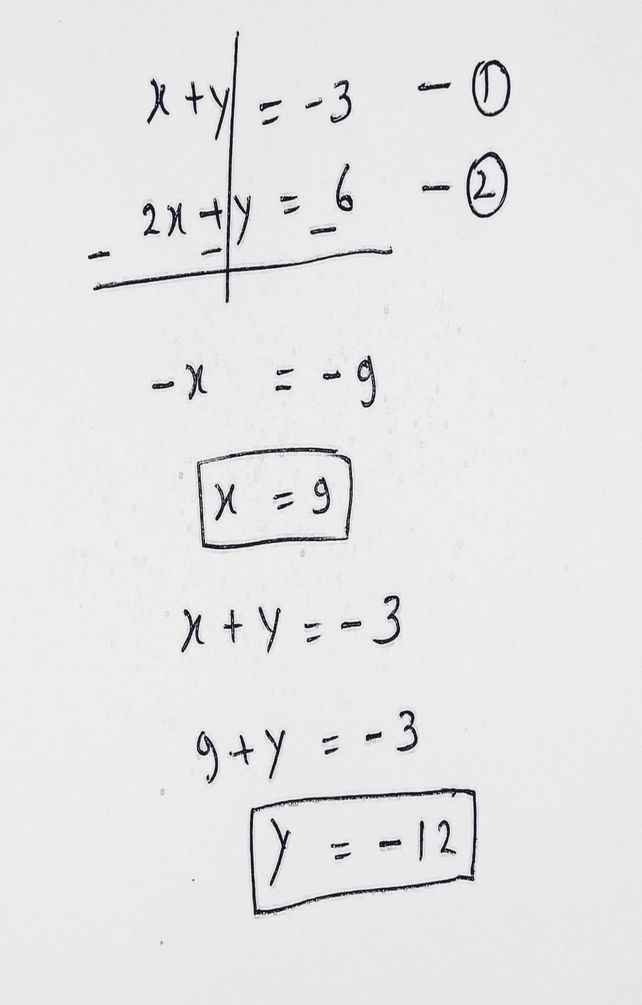 x + y = -3 - ①
2x + y = 6 - ②
- - -
-x = -9
x = 9
x + y = -3
9 + y = -3
y = -12